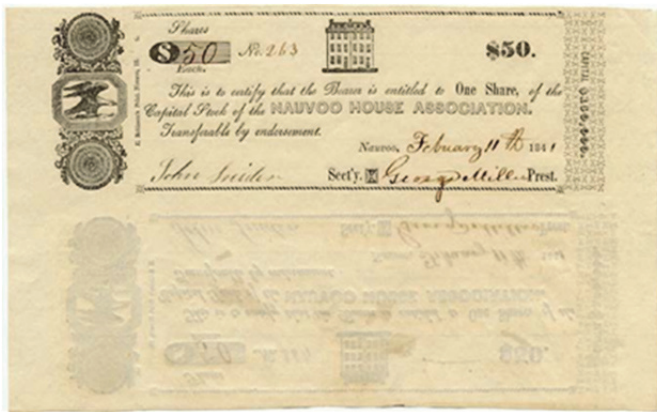 Shares
$50 No. 263
Each.
$50.
This is to certify that the Bearer is entitled to One Share, of the
Capital Stock of the NAUVOO HOUSE ASSOCIATION.
Transferable by endorsement.
Nauvoo, February 11th 1841
John Snider Sect'y. George Miller Prest.
CAPITAL